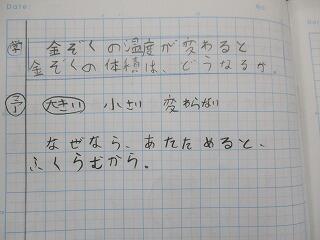 Date:
No.
学 金ぞくの温度が変わると
金ぞくの体積は、どうなるか。
大きい 小さい 変わらない
なぜなら、あたためると、
ふくらむから。